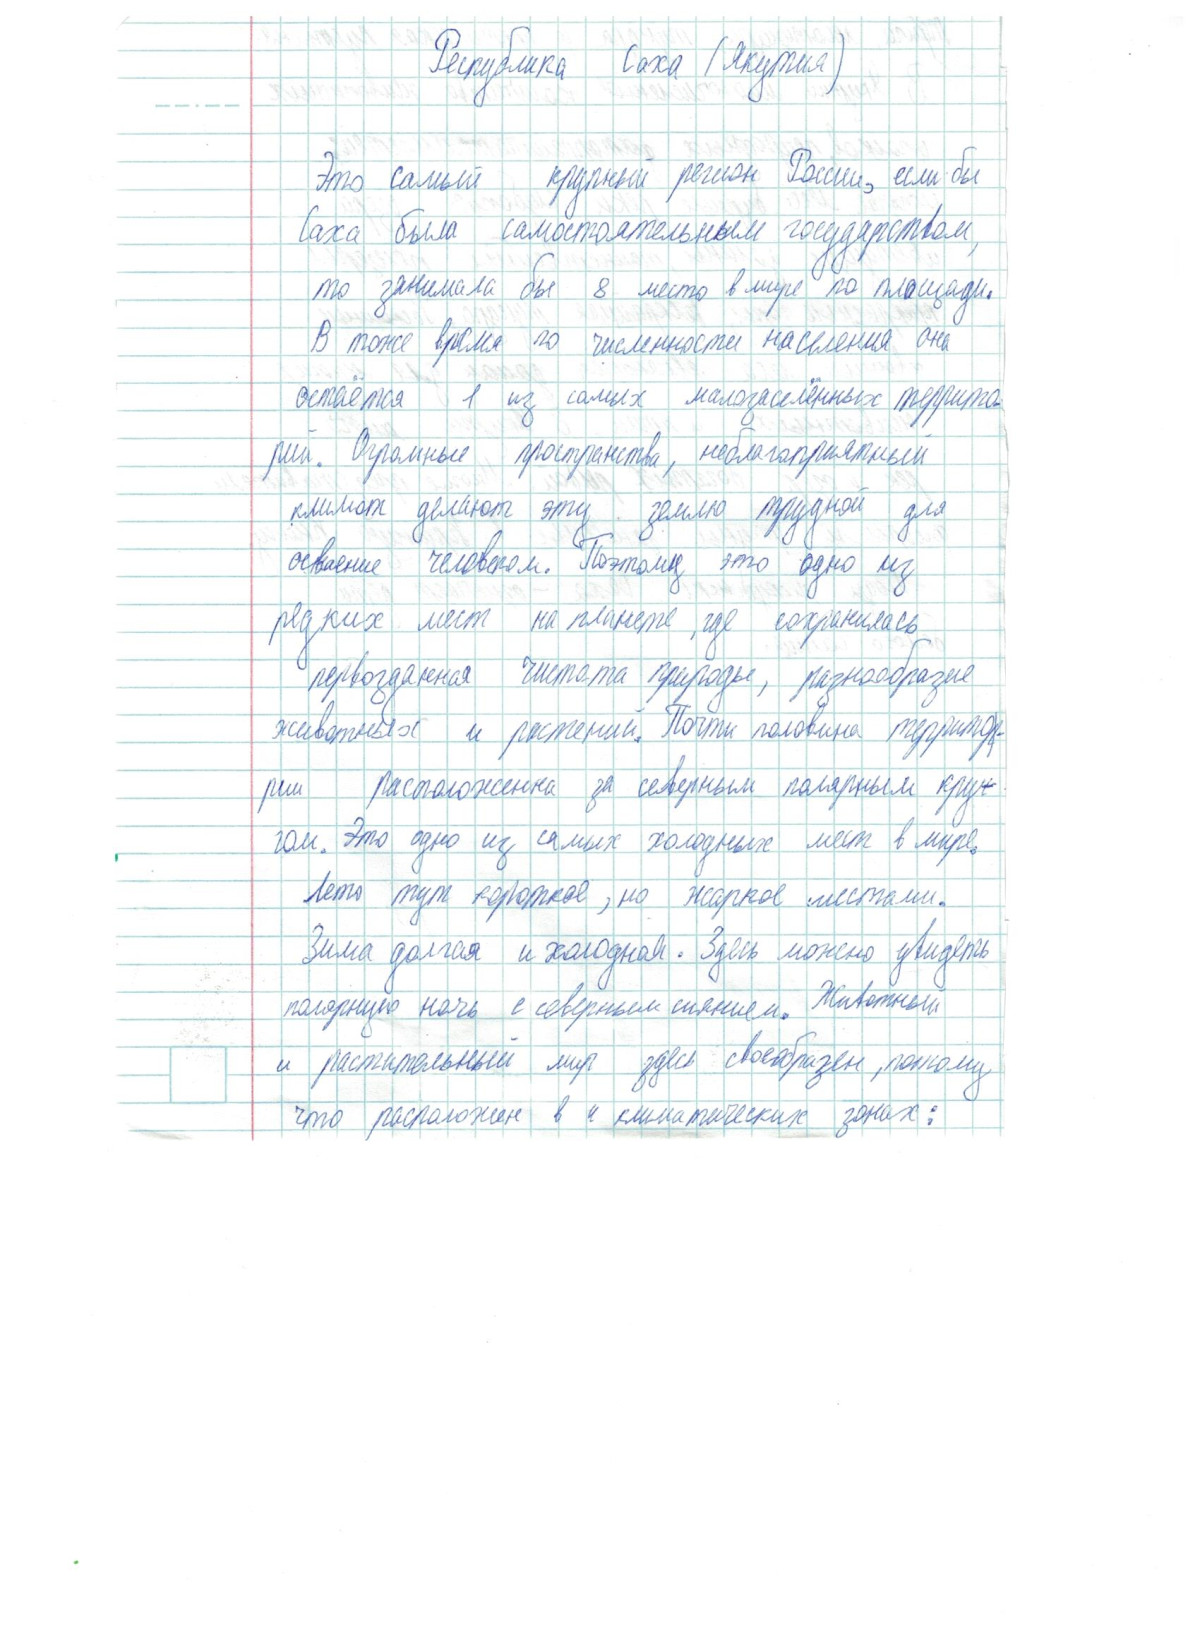 Республика Саха (Якутия)
Это самый крупный регион России, если бы
Саха была самостоятельным государством,
то занимала бы 8 место в мире по площади.
В тоже время по численности населения она
остаётся 1 из самых малозаселённых террито-
рий. Огромные пространства, неблагоприятный
климат делают эту землю трудной для
освоение человеком. Поэтому это одно из
редких мест на планете, где сохранилась
первозданная чистота природы, разнообразие
животных и растений. Почти половина территор-
рии расположенна за северным полярным круж-
гом. Это одно из самых холодных мест в мире.
Лето тут короткое, но жаркое местами.
Зима долгая и холодная. Здесь можно увидеть
полярную ночь с северным сиянием. Животный
и растительный мир здесь своеобразен, потому
что расположен в 4 климатических зонах: